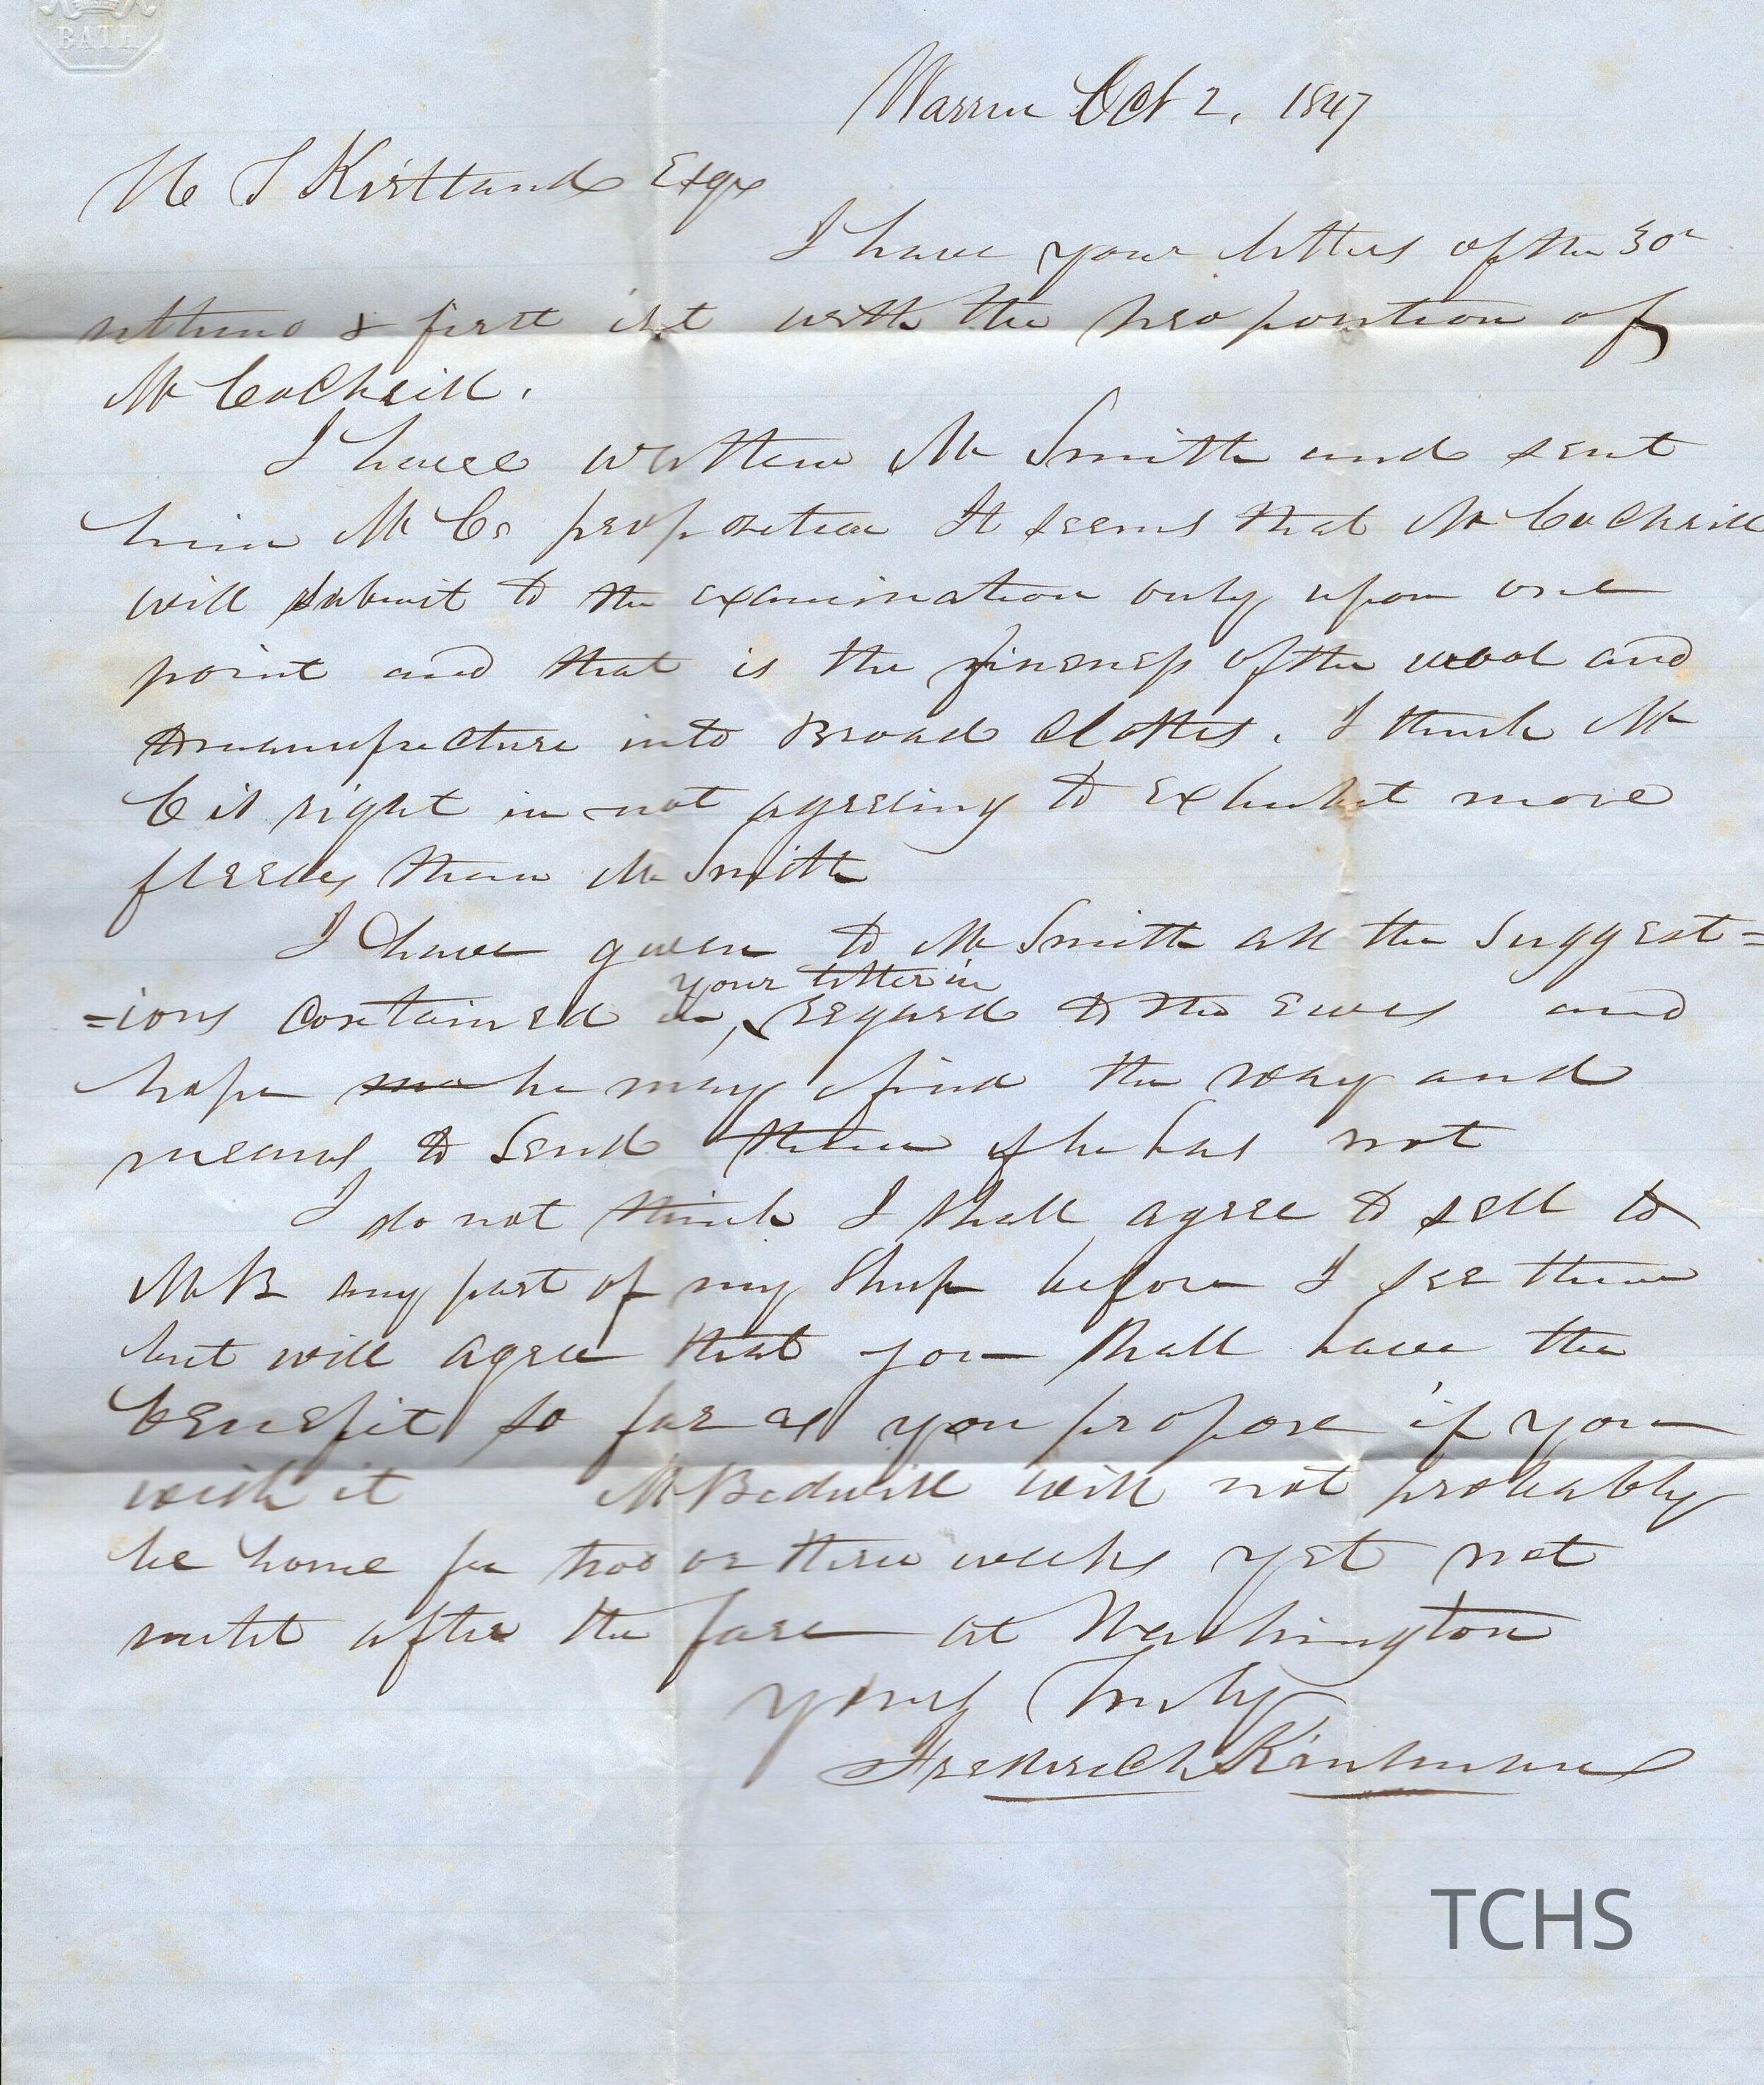 BATH
Warren Oct 2, 1847
I have your letters of the 30
& first ist with the proposition of
Mr Cockrill.
I have written Mr Smith and sent
him Mr Cs proposition It seems that Mr Cockrill
will submit to the examination only upon one
point and that is the fineness of the wool and
manufacture into Broad Cloths. I think Mr
C is right in not agreeing to exhibit more
fleeces than Mr Smith
I have given to Mr Smith all the suggest=
your letter in
=ions contained in regard to the Ewes and
hope he may find the way and
means to send them if he has not
I do not think I shall agree to sell to
Mr B any part of my Sheep before I see them
but will agree that you shall have the
benefit so far as you propose if you
wish it Mr Bidwill will not probably
be home for two or three weeks yet not
until after the fare at Washington
yours Truly
Frederick Kinsman
TCHS